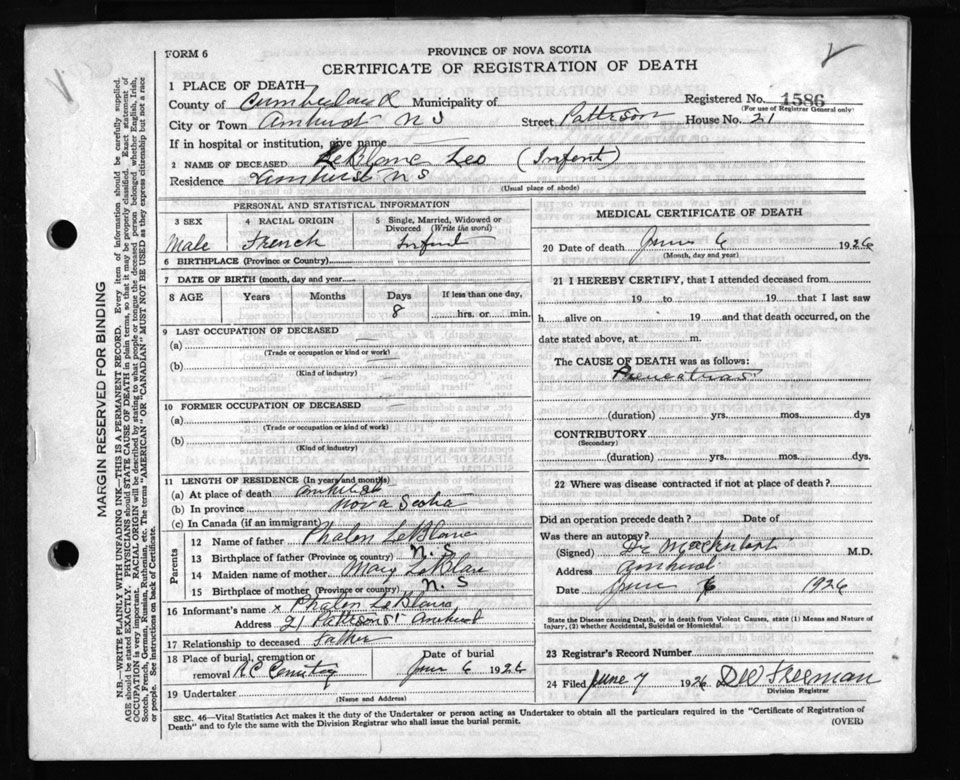 FORM 6
PROVINCE OF NOVA SCOTIA
CERTIFICATE OF REGISTRATION OF DEATH
1 PLACE OF DEATH
County of Cumberland Municipality of
Registered No. 1586
(For use of Registrar General only)
City or Town Amherst N S Street Pattison House No. 21
If in hospital or institution, give name
2 NAME OF DECEASED LeBlanc Leo (Infant)
Residence Amherst N S
(Usual place of abode)
PERSONAL AND STATISTICAL INFORMATION
3 SEX
Male
4 RACIAL ORIGIN
French
5 Single, Married, Widowed or Divorced (Write the word)
Infant
6 BIRTHPLACE (Province or Country)
7 DATE OF BIRTH (month, day and year)
8 AGE Years Months Days If less than one day,
8 hrs. or min.
9 LAST OCCUPATION OF DECEASED
(a)
(Trade or occupation or kind or work)
(b)
(Kind of industry)
10 FORMER OCCUPATION OF DECEASED
(a)
(Trade or occupation or kind of work)
(b)
(Kind of industry)
11 LENGTH OF RESIDENCE (In years and months)
(a) At place of death Amherst
(b) In province Nova Scotia
(c) In Canada (if an immigrant)
Parents
12 Name of father Phalon LeBlanc
13 Birthplace of father (Province or country) N. S
14 Maiden name of mother Mary LeBlanc
15 Birthplace of mother (Province or country) N. S
16 Informant's name x Phalon LeBlanc
Address 21 Pattison St Amherst
17 Relationship to deceased Father
18 Place of burial, cremation or removal R C Cemetery
Date of burial
June 6 1926
19 Undertaker
(Name and Address)
MEDICAL CERTIFICATE OF DEATH
20 Date of death June 6 1926
(Month, day and year)
21 I HEREBY CERTIFY, that I attended deceased from
19 to 19 that I last saw
h alive on 19 and that death occurred, on the
date stated above, at m.
The CAUSE OF DEATH was as follows:
(duration) yrs. mos. dys
CONTRIBUTORY
(Secondary)
(duration) yrs. mos. dys.
22 Where was disease contracted if not at place of death?
Did an operation precede death? Date of
Was there an autopsy?
(Signed) Dr M.D.
Address Amherst
Date June 6 1926
State the Disease causing Death, or in death from Violent Causes, state (1) Means and Nature of
Injury, (2) whether Accidental, Suicidal or Homicidal.
23 Registrar's Record Number
24 Filed June 7 1926 Freeman
Division Registrar
SEC. 46—Vital Statistics Act makes it the duty of the Undertaker or person acting as Undertaker to obtain all the particulars required in the "Certificate of Registration of
Death" and to fyle the same with the Division Registrar who shall issue the burial permit.
(OVER)
MARGIN RESERVED FOR BINDING
N.B.—WRITE PLAINLY WITH UNFADING INK—THIS IS A PERMANENT RECORD. Every item of information should be carefully supplied.
AGE should be stated EXACTLY. PHYSICIANS should STATE CAUSE OF DEATH in plain terms, so that it may be properly classified. Exact statement of
OCCUPATION is very important. RACIAL ORIGIN will be described by stating to what people or tongue the deceased person belonged whether English, Irish,
Scotch, French, German, Russian, Ruthenian, etc. The terms "AMERICAN" OR "CANADIAN" MUST NOT BE USED as they express citizenship but not a race
or people. See instructions on back of Certificate.